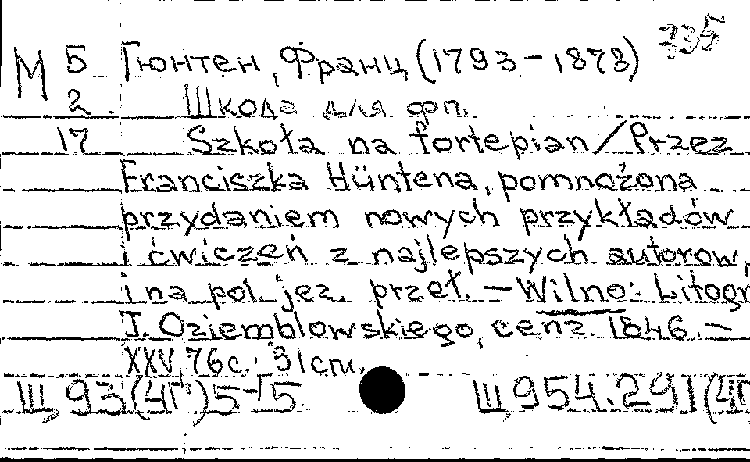 335
М 5 Гюнтен, Франц (1793-1878)
2. Школа для фп.
17 Szkoła na fortepian/Przez
Franciszka Hüntena, pomnożona
przydaniem nowych przykładów
i ćwiczeń z najlepszych autorow,
i na pol. jez. przeł. — Wilno: Litogr
J. Oziemblowskiego, cenz. 1846. —
XXV, 76 с.; 31 cm.
Щ 93(4Г)5-5 Щ 954.291(4Г